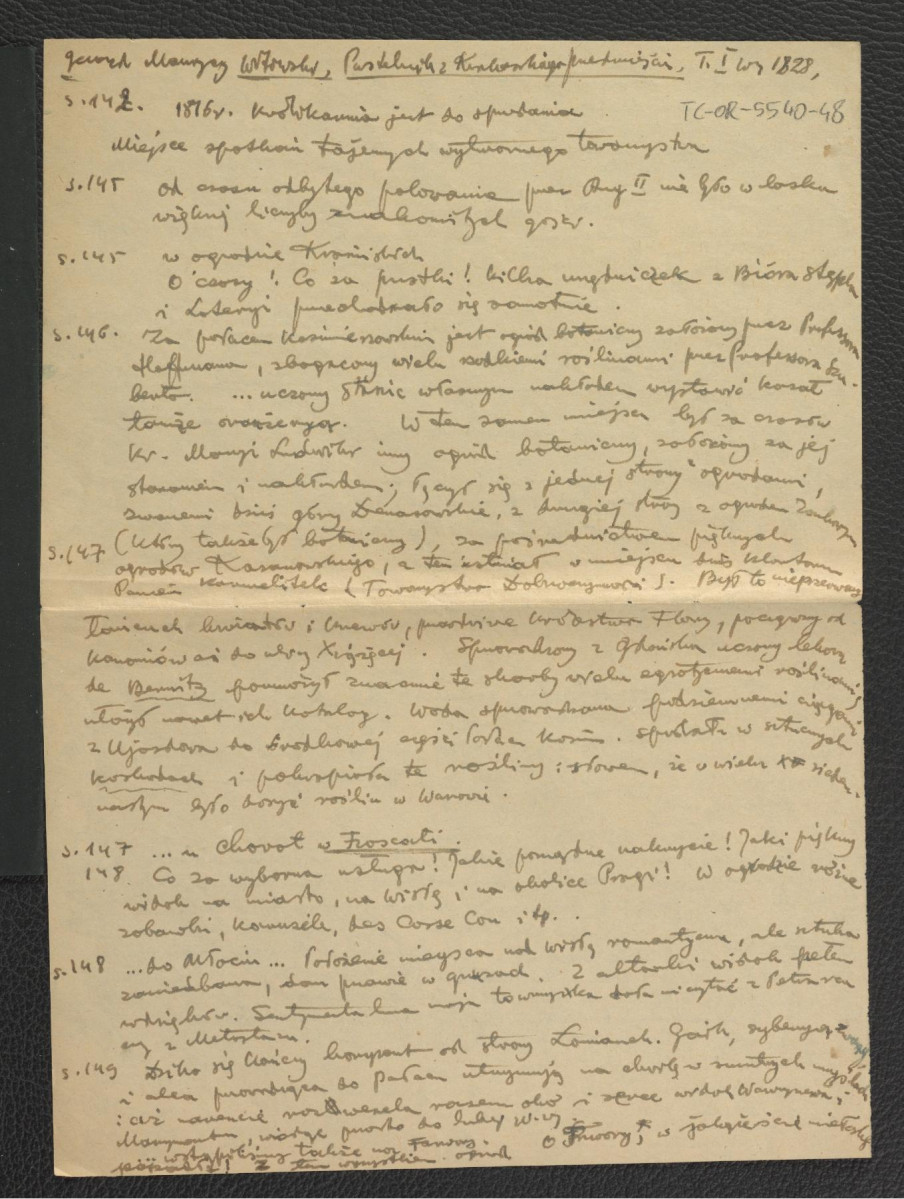 Gerard Maurycy Witowski, Pustelnik z Krakowskiego przedmieścia, T. I Wy 1828,
s. 142. 1816 r. Królikarnia jest do sprzedania
TC-OR-5540-48
Miejsce spotkań tajemnych wytwornego towarzystwa
s. 145 od czasu odbytego polowania przez Aug II nie było w lasku
większej liczby znakomitych gości.
s. 145 w ogrodzie Krasińskich
O czasy! Co za pustki! kilka urzędniczek z Bióra Stępla
i Loteryi przechadzało się samotnie.
s. 146. Za pałacem Kazimirowskim jest ogród botaniczny założony przez Professora
Hoffmana, zbogacony wielu rzadkiemi roślinami przez Professora Szu-
berta. ... uczony własnym nakładem wystawić kazał
tamże oranżeryę. W tem samem miejscu był za czasów
Kr. Maryi Ludwiki inny ogród botaniczny, założony za jej
staraniem i nakładem; łączył się z jednej strony ogrodami,
zwanemi dziś góry Dynasowskie, z drugiej strony z ogrodem
s. 147 (który także był botaniczny), za pośrednictwem pięknych
ogrodów Kazanowskiego, a ten istniał w miejscu dziś klasztoru
Panien Karmelitek (Towarzystwa Dobroczynności). Był to nieprzerwany
łańcuch kwiatów i krzewów, prawdziwe królestwo Flory, począwszy od
Kanoniów aż do ulicy Xiążęcej. Sprowadzony z Gdańska uczony lekarz
de Bernitz pomnożył znacznie te skarby wielu egzotycznemi roślinami,
ułożył nawet ich katalog. Woda sprowadzana podziemnemi
z Ujazdowa do środkowej części Pałacu Kazim. spadała w sztucznych
kaskadach i pokrapiała te rośliny: słowem, że w wieku XV siedem-
nastym było dosyć roślin w Warszawie.
s. 147 ... u Chovot w Frascati.
148. Co za wyborna usługa! Jakie porządne nakrycie! Jaki piękny
widok na miasto, na Wisłę, i na okolice Pragi! W ogrodzie różne
zabawki, karuzele, des Casse Cou i tp.
s. 148 ... do Młocin ... Położenie miejsca nad Wisłą romantyczne, ale sztuka
zaniedbana, dom prawie w gruzach. Z altanki widok pełen
wdzięków. Sentymentalna moja towarzyszka
czy z Metastazu.
s. 149 Dziko się kończy horyzont od strony Łomianek. Gaik,
i aleą prowadząca do Pałacu utrzymują na chwilę w smutnych myślach
i cóż nareszcie rozwesela razem oko i serce widok Wawrzyszewa,
Marymontu,